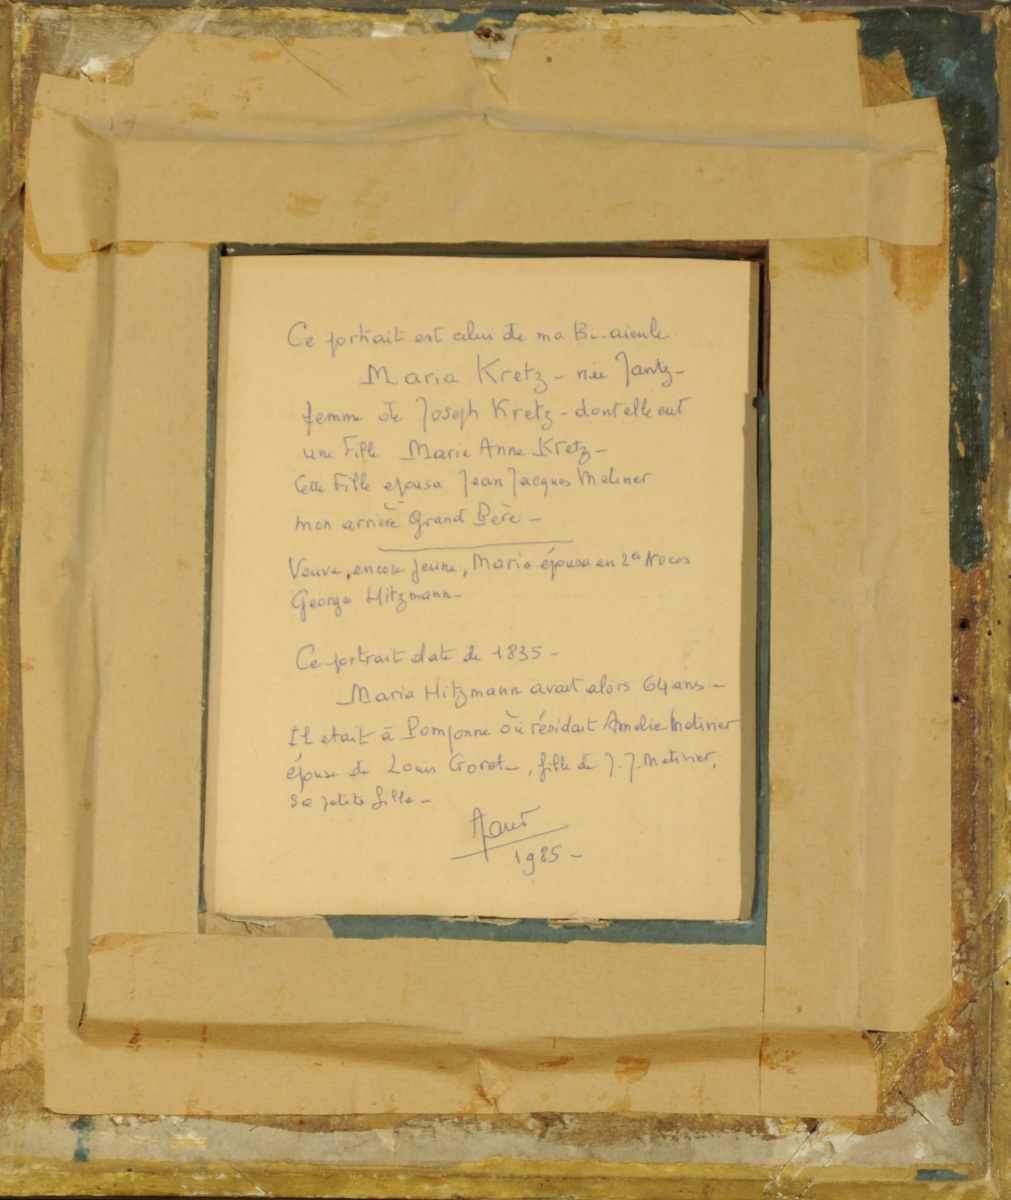 Ce portrait est celui de ma Bi-aieule
Maria Kretz - née Jantz -
femme de Joseph Kretz - dont elle eut
une Fille Marie Anne Kretz -
Cette Fille epousa Jean Jacques Metiner
mon arrière Grand Père -
Veuve, encore jeune, Maria épousa en 2es Noces
George Hitzmann -
Ce portrait date de 1835 -
Maria Hitzmann avait alors 64 ans -
Il etait à Pomponne où résidait Amélie Metivier
épouse de Louis Goret -, fille de J. J. Metivier,
sa petite fille -
1985 -